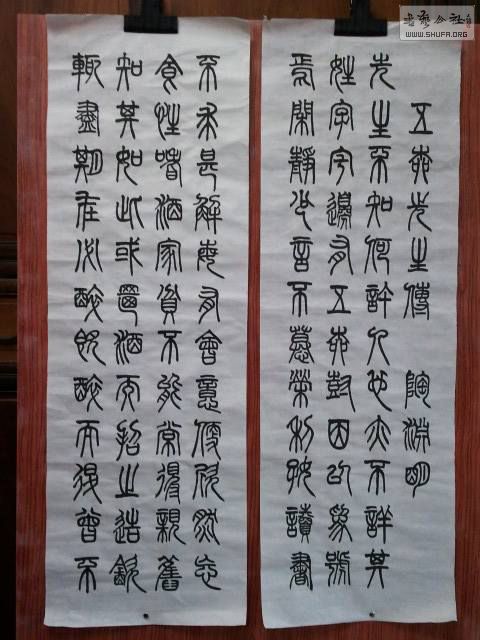 五柳先生傳 陶淵明
先生不知何許人也亦不詳其
姓字宅邊有五柳樹因以為號
焉閑靜少言不慕榮利好讀書
不求甚解每有會意便欣然忘
食性嗜酒家貧不能常得親舊
知其如此或置酒而招之造飲
輒盡期在必醉既醉而退曾不
WWW.SHUFA.ORG